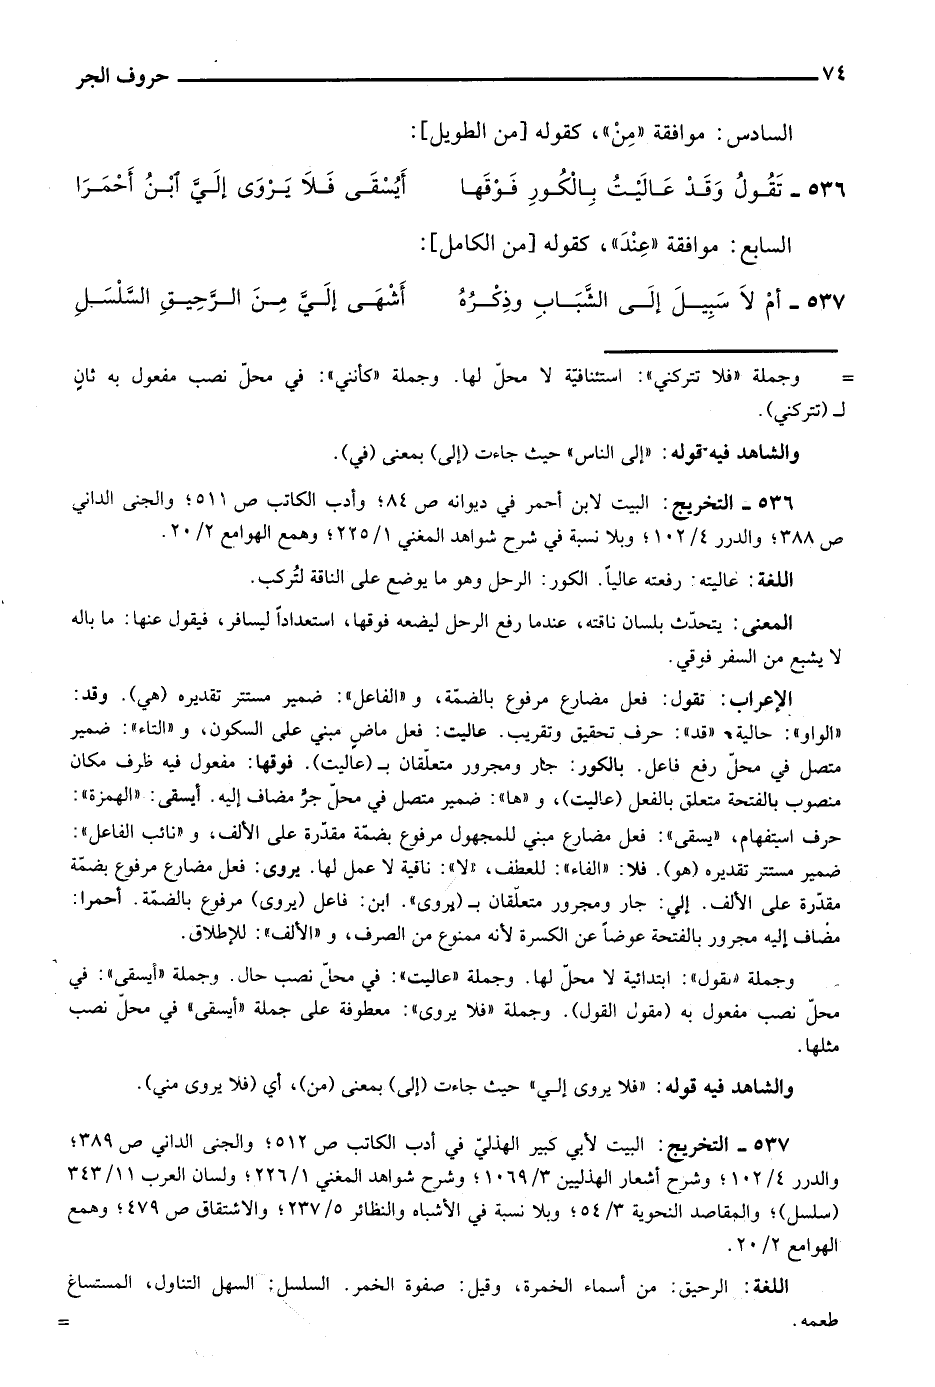 ٧٤ حروف الجر
السادس: موافقة «مِنْ»، كقوله [من الطويل]:
٥٣٦ ـ تَقُولُ وَقَدْ عَالَيْتُ بِالْكُورِ فَوْقَهَا أَيُسْقَى فَلاَ يَرْوَى إِلَيَّ ٱبْنُ أَحْمَرَا
السابع: موافقة «عِنْدَ»، كقوله [من الكامل]:
٥٣٧ ـ أمْ لاَ سَبِيلَ إلَى الشَّبَابِ وذِكْرُهُ أَشْهَى إلَيَّ مِنَ الرَّحِيقِ السَّلْسَلِ
= وجملة «فلا تتركني»: استئنافيّة لا محلّ لها. وجملة «كأنني»: في محلّ نصب مفعول به ثانٍ
لـ (تتركني).
والشاهد فيه قوله: «إلى الناس» حيث جاءت (إلى) بمعنى (في).
٥٣٦ ـ التخريج: البيت لابن أحمر في ديوانه ص ٨٤؛ وأدب الكاتب ص ٥١١؛ والجنى الداني
ص ٣٨٨؛ والدرر ١٠٢/٤؛ وبلا نسبة في شرح شواهد المغني ٢٢٥/١؛ وهمع الهوامع ٢٠/٢.
اللغة: عاليته: رفعته عالياً. الكور: الرحل وهو ما يوضع على الناقة لتُركب.
المعنى: يتحدّث بلسان ناقته، عندما رفع الرحل ليضعه فوقها، استعداداً ليسافر، فيقول عنها: ما باله
لا يشبع من السفر فوقي.
الإعراب: تقول: فعل مضارع مرفوع بالضمّة، و «الفاعل»: ضمير مستتر تقديره (هي). وقد:
«الواو»: حالية، «قد»: حرف تحقيق وتقريب. عاليت: فعل ماضٍ مبني على السكون، و «التاء»: ضمير
متصل في محلّ رفع فاعل. بالكور: جار ومجرور متعلّقان بـ (عاليت). فوقها: مفعول فيه ظرف مكان
منصوب بالفتحة متعلق بالفعل (عاليت)، و «ها»: ضمير متصل في محلّ جرّ مضاف إليه. أيسقى: «الهمزة»:
حرف استفهام، «يسقى»: فعل مضارع مبني للمجهول مرفوع بضمّة مقدّرة على الألف، و «نائب الفاعل»:
ضمير مستتر تقديره (هو). فلا: «الفاء»: للعطف، «لا»: نافية لا عمل لها. يروى: فعل مضارع مرفوع بضمّة
مقدّرة على الألف. إلي: جار ومجرور متعلّقان بـ (يروى). ابن: فاعل (يروى) مرفوع بالضمّة. أحمرا:
مضاف إليه مجرور بالفتحة عوضاً عن الكسرة لأنه ممنوع من الصرف، و «الألف»: للإطلاق.
وجملة «تقول»: ابتدائية لا محلّ لها. وجملة «عاليت»: في محلّ نصب حال. وجملة «أيسقى»: في
محلّ نصب مفعول به (مقول القول). وجملة «فلا يروى»: معطوفة على جملة «أيسقى» في محلّ نصب
مثلها.
والشاهد فيه قوله: «فلا يروى إلي» حيث جاءت (إلى) بمعنى (من)، أي (فلا يروى مني).
٥٣٧ ـ التخريج: البيت لأبي كبير الهذليّ في أدب الكاتب ص ٥١٢؛ والجنى الداني ص ٣٨٩؛
والدرر ١٠٢/٤؛ وشرح أشعار الهذليين ١٠٦٩/٣؛ وشرح شواهد المغني ٢٢٦/١؛ ولسان العرب ٣٤٣/١١
(سلسل)؛ والمقاصد النحوية ٥٤/٣؛ وبلا نسبة في الأشباه والنظائر ٢٣٧/٥؛ والاشتقاق ص ٤٧٩؛ وهمع
الهوامع ٢٠/٢.
اللغة: الرحيق: من أسماء الخمرة، وقيل: صفوة الخمر. السلسل: السهل التناول، المستساغ
طعمه. =